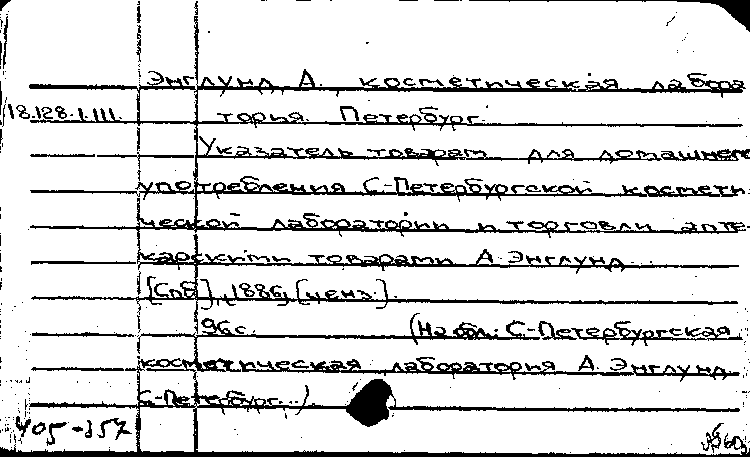 Энглунд, А. косметическая лабора
18.128.1.111. тория. Петербург.
Указатель товарам для домашнего
употребления С-Петербургской космети-
ческой лаборатории и торговли апте-
карскими товарами А. Энглунд...
[Спб], 1886, [ценз.].
96 с. (На обл.: С-Петербургская
косметическая лаборатория А. Энглунд
С-Петербург...)
405-157